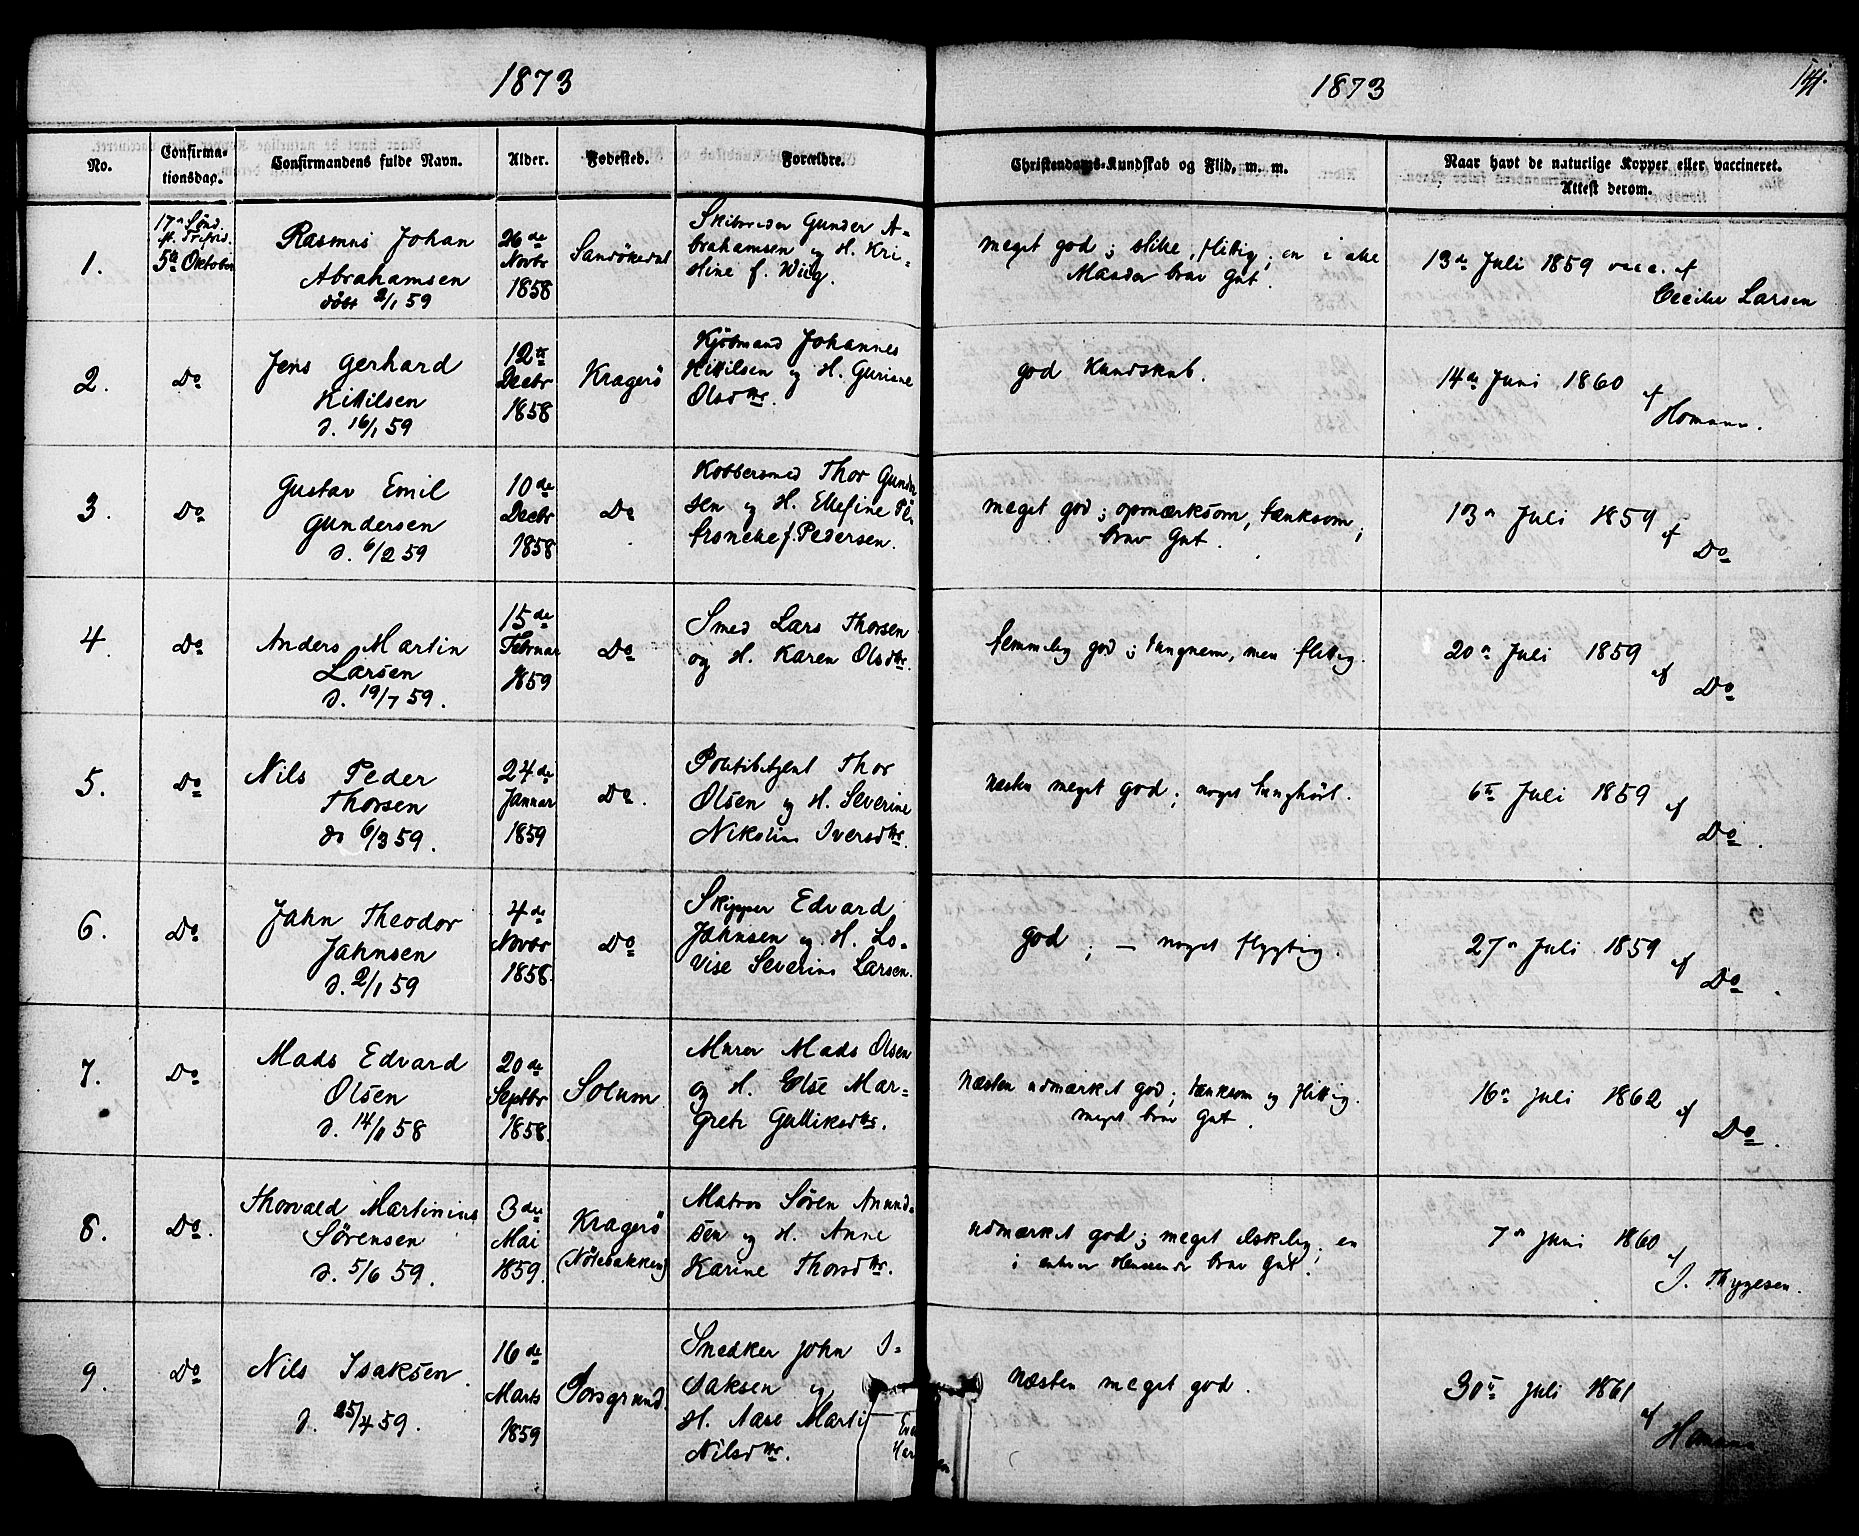 1873
1873
No.
Confirma-
tionsdag.
Confirmandens fulde Navn.
Alder.
Fødested.
Forældre.
Christendoms-Kundskab og Flid, m. m.
Naar havt de naturlige Kopper eller vaccineret.
Attest derom.
1.
17n Sønd.
5te Oktober
Rasmus Johan
Abrahamsen
døbt 2/1 59
26de
Novbr
1858
Sandøkedal
Skibsreder Gunder A-
brahamsen og H. Kri-
stine f. Wiig.
meget god; stille, flittig; en i alle
Maader brav Gut.
13de Juli 1859 vacc. af
Cecilie Larsen
2.
Do
Jens Gerhard
Kittilsen
d. 16/1 59
12te
Decbr
1858
Kragerø
Kjøbmand Johannes
Kittilsen og H. Guriane
Olsdtr.
god Kundskab.
14de Juni 1860 af
Homann.
3.
Do
Gustav Emil
Gundersen
d. 6/2 59
10de
Decbr
1858
Do
Kobbersmed Thor Gunder
sen og H. Ellefine Pe
tronelle f. Pedersen.
meget god; opmærksom, tænksom;
brav Gut.
13n Juli 1859 af
Do
4.
Do
Anders Martin
Larsen
d. 19/7 59.
15de
Februar
1859
Do
Smed Lars Thorsen
og H. Karen Olsdtr.
temmelig god; tungnem, men flittig.
20n Juli 1859 af
Do
5.
Do
Nils Peder
Thorsen
do 6/3 59.
24de
Januar
1859
Do.
Politibetjent Thor
Olsen og H. Severine
Nikoline Iversdtr.
næsten meget god; noget tunghørt.
6te Juli 1859 af
Do.
6.
Do
Jahn Theodor
Jahnsen
d. 2/1 59
4de
Novbr
1858.
Do
Skipper Edvard
Jahnsen og H. Lo-
vise Severine Larsen.
god; — noget flygtig.
27n Juli 1859 af
Do.
7.
Do
Mads Edvard
Olsen
d. 14/11 58
20de
Septbr
1858.
Solum
Murer Mads Olsen
og H. Else Mar-
grete Gulliksdtr.
Næsten udmærket god; tænksom og flittig.
meget brav Gut.
16n Juli 1862 af
Do.
8.
Do.
Thorvald Martinius
Sørensen
d. 5/6 59.
3die
Mai
1859.
Kragerø
(Nötebakken)
Matros Sören Anund-
sen og H. Anne
Karine Thorsdtr.
udmærket god; meget elskelig; en
i enhver Henseende brav Gut.
7n Juni 1860 af
J. Thygesen.
9.
Do
Nils Isaksen.
d. 25/4 59.
16de
Marts
1859
Porsgrund.
Snedker John I-
saksen og
H. Aase Marti
Nilsdtr.
næsten meget god.
30te Juli 1861 af
Homann